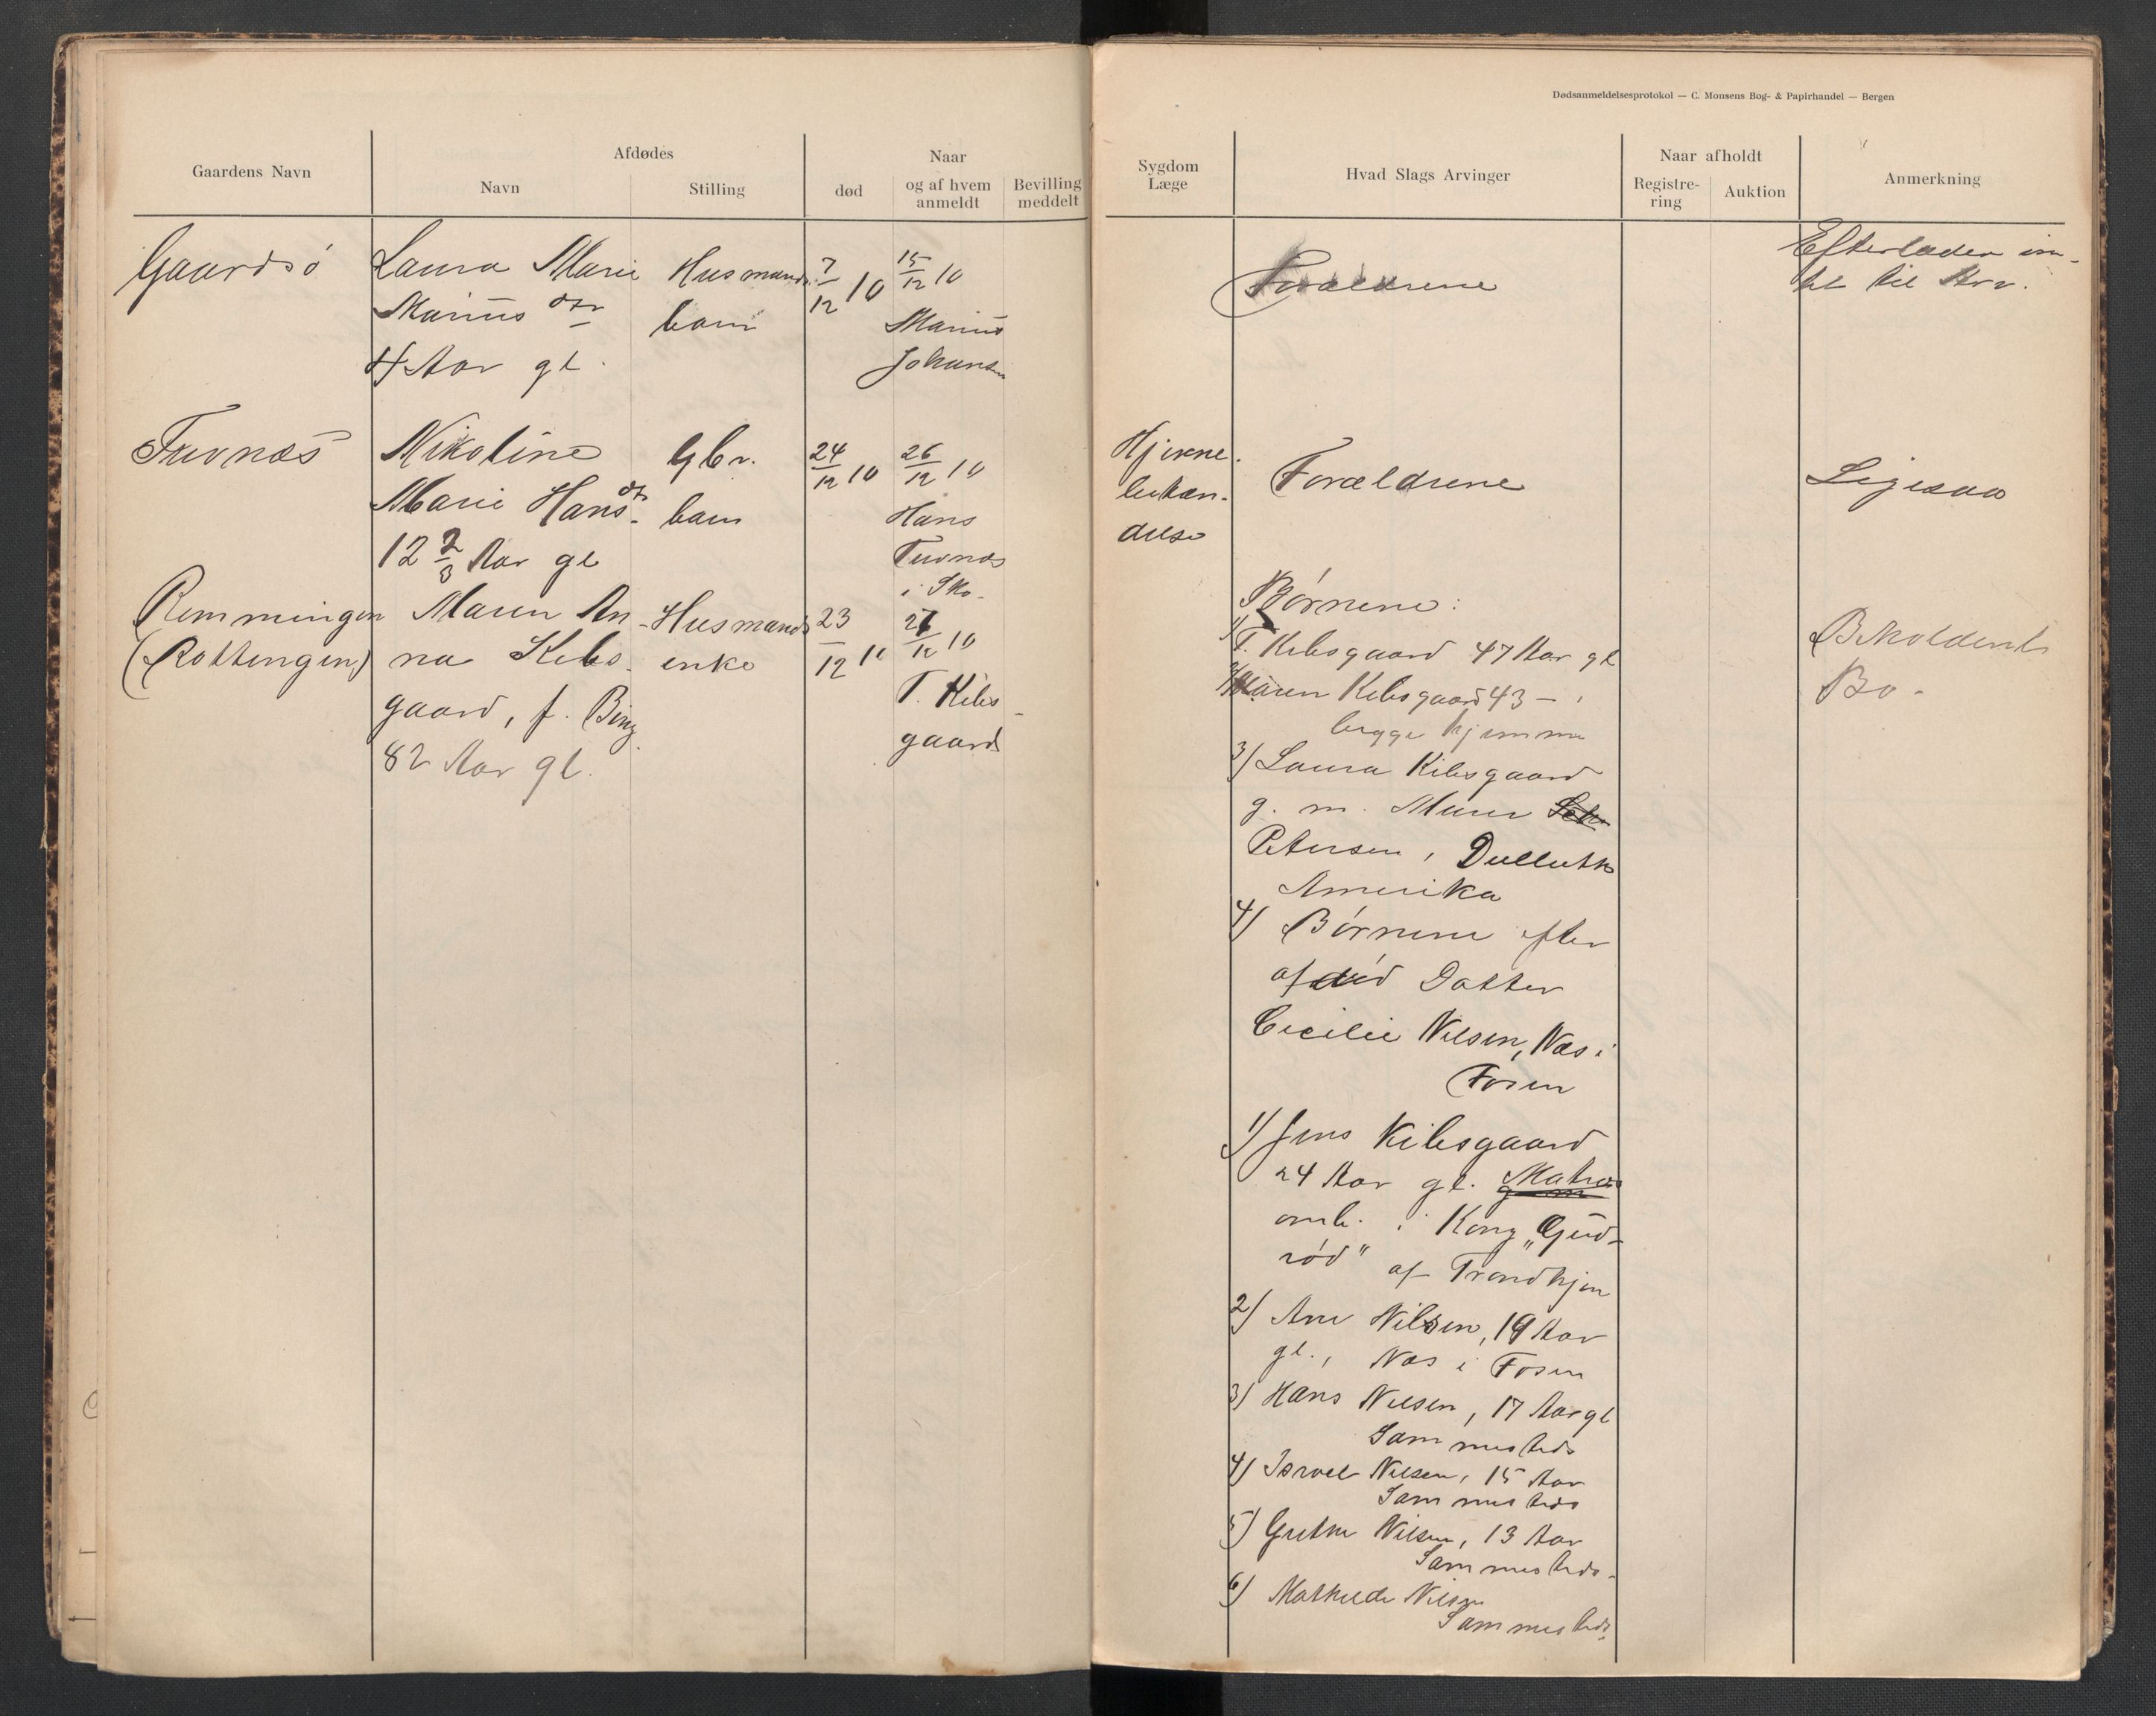 Dødsanmeldelsesprotokol — C. Monsens Bog- & Papirhandel — Bergen
Gaardens Navn
Afdødes
Navn
Stilling
Naar
død
og af hvem
anmeldt
Bevilling
meddelt
Sygdom
Læge
Hvad Slags Arvinger
Naar afholdt
Registre-
ring
Auktion
Anmerkning
Gaardsö
Laura Marie
Marius dtr
4 Aar gl.
Husmands
barn
7/12 10
15/12 10
Marius
Johansen
Forældrene
Efterlader in-
tet til Arv.
Tuvnæs
Nikoline
Marie Hansdt.
12 2/3 Aar gl
Gbr.
barn
24/12 10
26/12 10
Hans
Tuvnæs
i Sko.
Hjerne
betæn-
delse
Forældrene
Ligesaa
Remmingen
(Rottingen)
Maren An-
na Kibs-
gaard, f. Bing
82 Aar gl.
Husmands
enke
23/12 10
27/12 10
T. Kibs-
gaard
Børnene:
1) T. Kibsgaard 47 Aar gl
2) Maren Kibsgaard 43 — "
begge hjemme
3) Laura Kibsgaard
g. m. Murer
Petersen, Dulluth
Amerika
4) Børnene efter
afdød Datter
Cecilie Nilsen, Næs i
Fosen
1) Jens Kibsgaard
24 Aar gl. Matros
omb. i Kong „Gud-
rød" af Trondhjem
2) Ane Nilsen, 19 Aar
gl., Næs i Fosen
3) Hans Nilsen, 17 Aar gl
Sammesteds
4) Israel Nilsen, 15 Aar
Sammesteds
5) Grethe Nilsen, 13 Aar
Sammesteds.
6) Mathilde Nilsen
Sammesteds.
Beholdent
Bo.